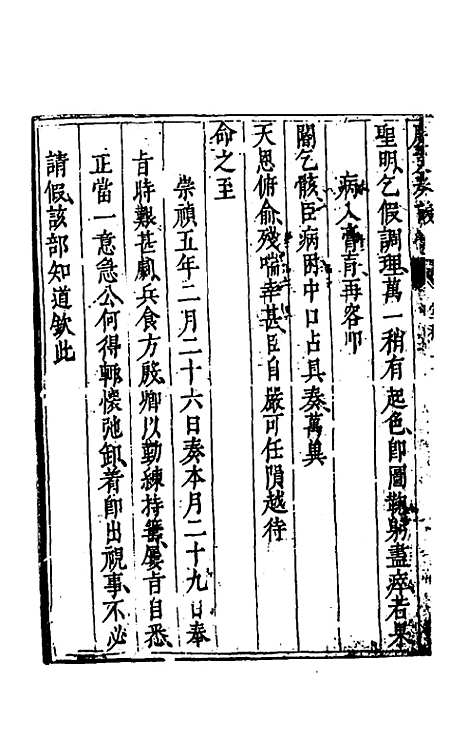 聖明乞假調理萬一稍有起色即圖鞠躬盡瘁者果
病入膏肓再容叩
閽乞骸臣病困中口占具奏萬異
天恩俯俞殘喘幸甚臣自嚴可任隕越待
命之至
崇禎五年二月二十六日奏本月二十九日奉
旨時艱甚劇兵食方殷卿以勤練持籌屢旨自悉
正當一意急公何得輒懷弛卸着卽出視事不必
請假該部知道欽此